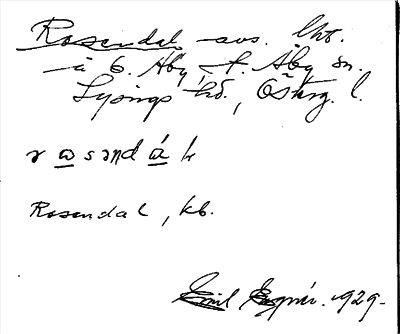 Rosendal avs. lht.
i 6. Åby, t. Åby sn.
Lysings hd., Östrg. l.
Rosendal, kb.
Emil 1929.